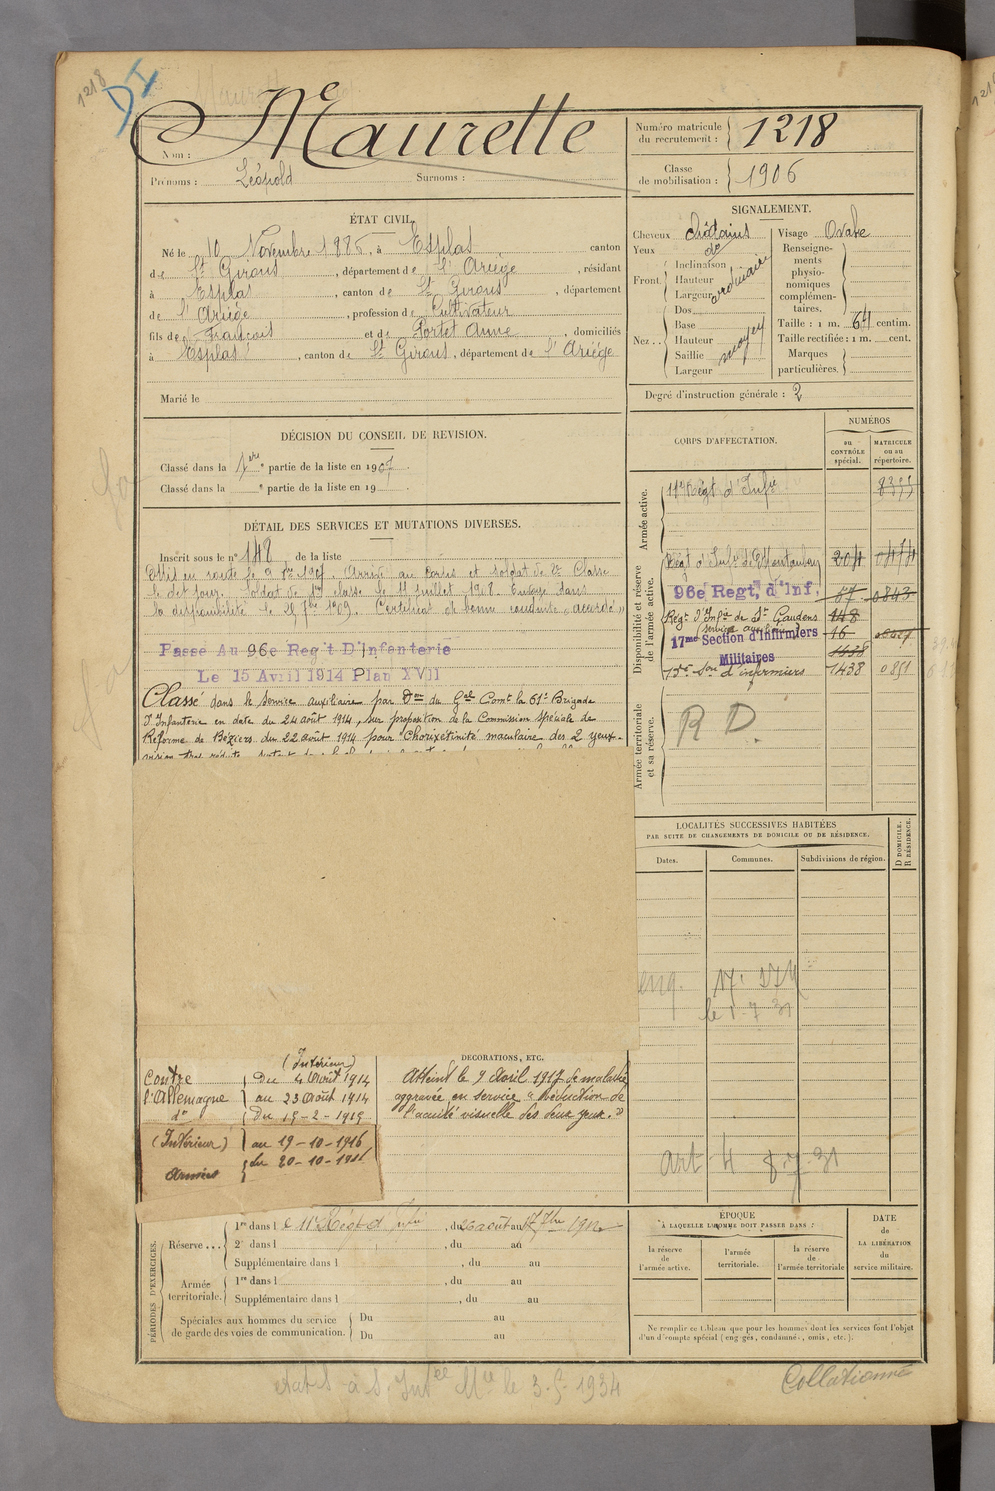 1218
DI
Maurette
Nom :
Prénoms : Léopold Surnoms :
Numéro matricule du recrutement : 1218
Classe de mobilisation : 1906
ÉTAT CIVIL.
Né le 10 Novembre 1886, à Esplas canton
de St Girons, département de l'Ariège, résidant
à Esplas, canton de St Girons, département
de l'Ariège, profession de Cultivateur
fils de François et de Portet Anne, domiciliés
à Esplas, canton de St Girons, département de l'Ariége
Marié le
SIGNALEMENT.
Cheveux châtains
Yeux do
Front. Inclinaison
Hauteur
Largeur
ordinaire
Nez... Dos
Base
Hauteur
Saillie
Largeur
moyen
Visage Ovale
Renseignements physionomiques complémentaires.
Taille : 1 m. 64 centim.
Taille rectifiée : 1 m. cent.
Marques particulières.
Degré d'instruction générale : 2
DÉCISION DU CONSEIL DE REVISION.
Classé dans la 1ère partie de la liste en 1907
Classé dans la e partie de la liste en 19
DÉTAIL DES SERVICES ET MUTATIONS DIVERSES.
Inscrit sous le n° 148 de la liste
Mis en route le 9 8bre 1907. Arrivé au Corps et soldat de 2e Classe
le dit jour. Soldat de 1re classe le 11 juillet 1908. Envoyé dans
la disponibilité le 25 7bre 1909. Certificat de bonne conduite "accordé"
Passé Au 96e Reg't D'Infanterie
Le 15 Avril 1914 Plan XVII
Classé dans le service auxiliaire par Don du Gal Comt la 61e Brigade
d'Infanterie en date du 24 août 1914, sur proposition de la Commission spéciale de
Réforme de Béziers du 22 août 1914 pour "Choriorétinite maculaire des 2 yeux-
CORPS D'AFFECTATION.
NUMÉROS
au CONTRÔLE spécial.
MATRICULE ou au répertoire.
Armée active.
11e Régt d'Infie 8355
Disponibilité et réserve de l'armée active.
Régt d'Infie de Montauban 204
96e Regt, d'Inf, 87 0843
Régt d'Infie de St Gaudens 148
(service auxiliaire)
17me Section d'Infirmiers Militaires 16
1438
17e Son d'infirmiers 1438 0851
Armée territoriale et sa réserve.
R D.
LOCALITÉS SUCCESSIVES HABITÉES
PAR SUITE DE CHANGEMENTS DE DOMICILE OU DE RÉSIDENCE.
Dates.
Communes.
Subdivisions de région.
D DOMICILE. R RÉSIDENCE.
le 1-7 31
art 4 8.7.31
(Intérieur)
Contre Du 4 Août 1914
l'Allemagne au 23 Août 1914
do Du 15-2-1915
(Intérieur) au 19-10-1916
Armées du 20-10-1916
DECORATIONS, ETC.
Atteint le 9 Avril 1917 de maladie
aggravée en service "Réduction de
l'acuité visuelle des deux yeux."
PÉRIODES D'EXERCICES.
Réserve... 1re dans le 11e Régt d'Infie, du 26 août au 17 7bre 1912
2e dans l , du au
Supplémentaire dans l , du au
Armée territoriale. 1re dans l , du au
Supplémentaire dans l , du au
Spéciales aux hommes du service de garde des voies de communication. Du au
Du au
ÉPOQUE
À LAQUELLE L'HOMME DOIT PASSER DANS :
la réserve de l'armée active.
l'armée territoriale.
la réserve de l'armée territoriale
DATE DE LA LIBÉRATION du service militaire.
Ne remplir ce tableau que pour les hommes dont les services font l'objet
d'un décompte spécial (engagés, condamnés, omis, etc.).
le 3-5-1934
Collationné